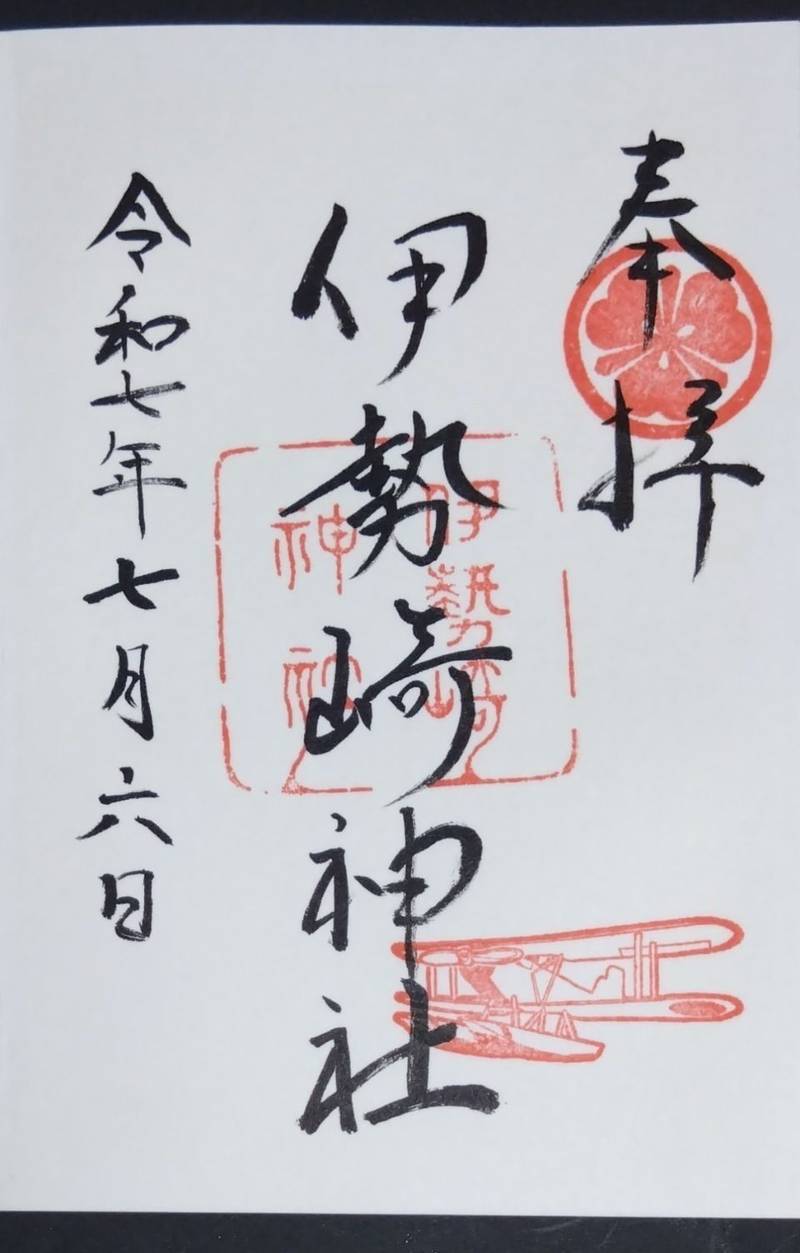 奉拝
伊勢崎神社
伊勢崎
神社
令和七年七月六日